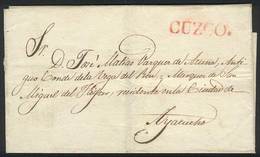 CUZCO.
Sr.
D. José Matías Vazquez de Acuña, Anti-
guo Conde de la Vega del Ren, y Marques de Sn.
Miguel de Híjar, residente en la Ciudad de
Ayacucho